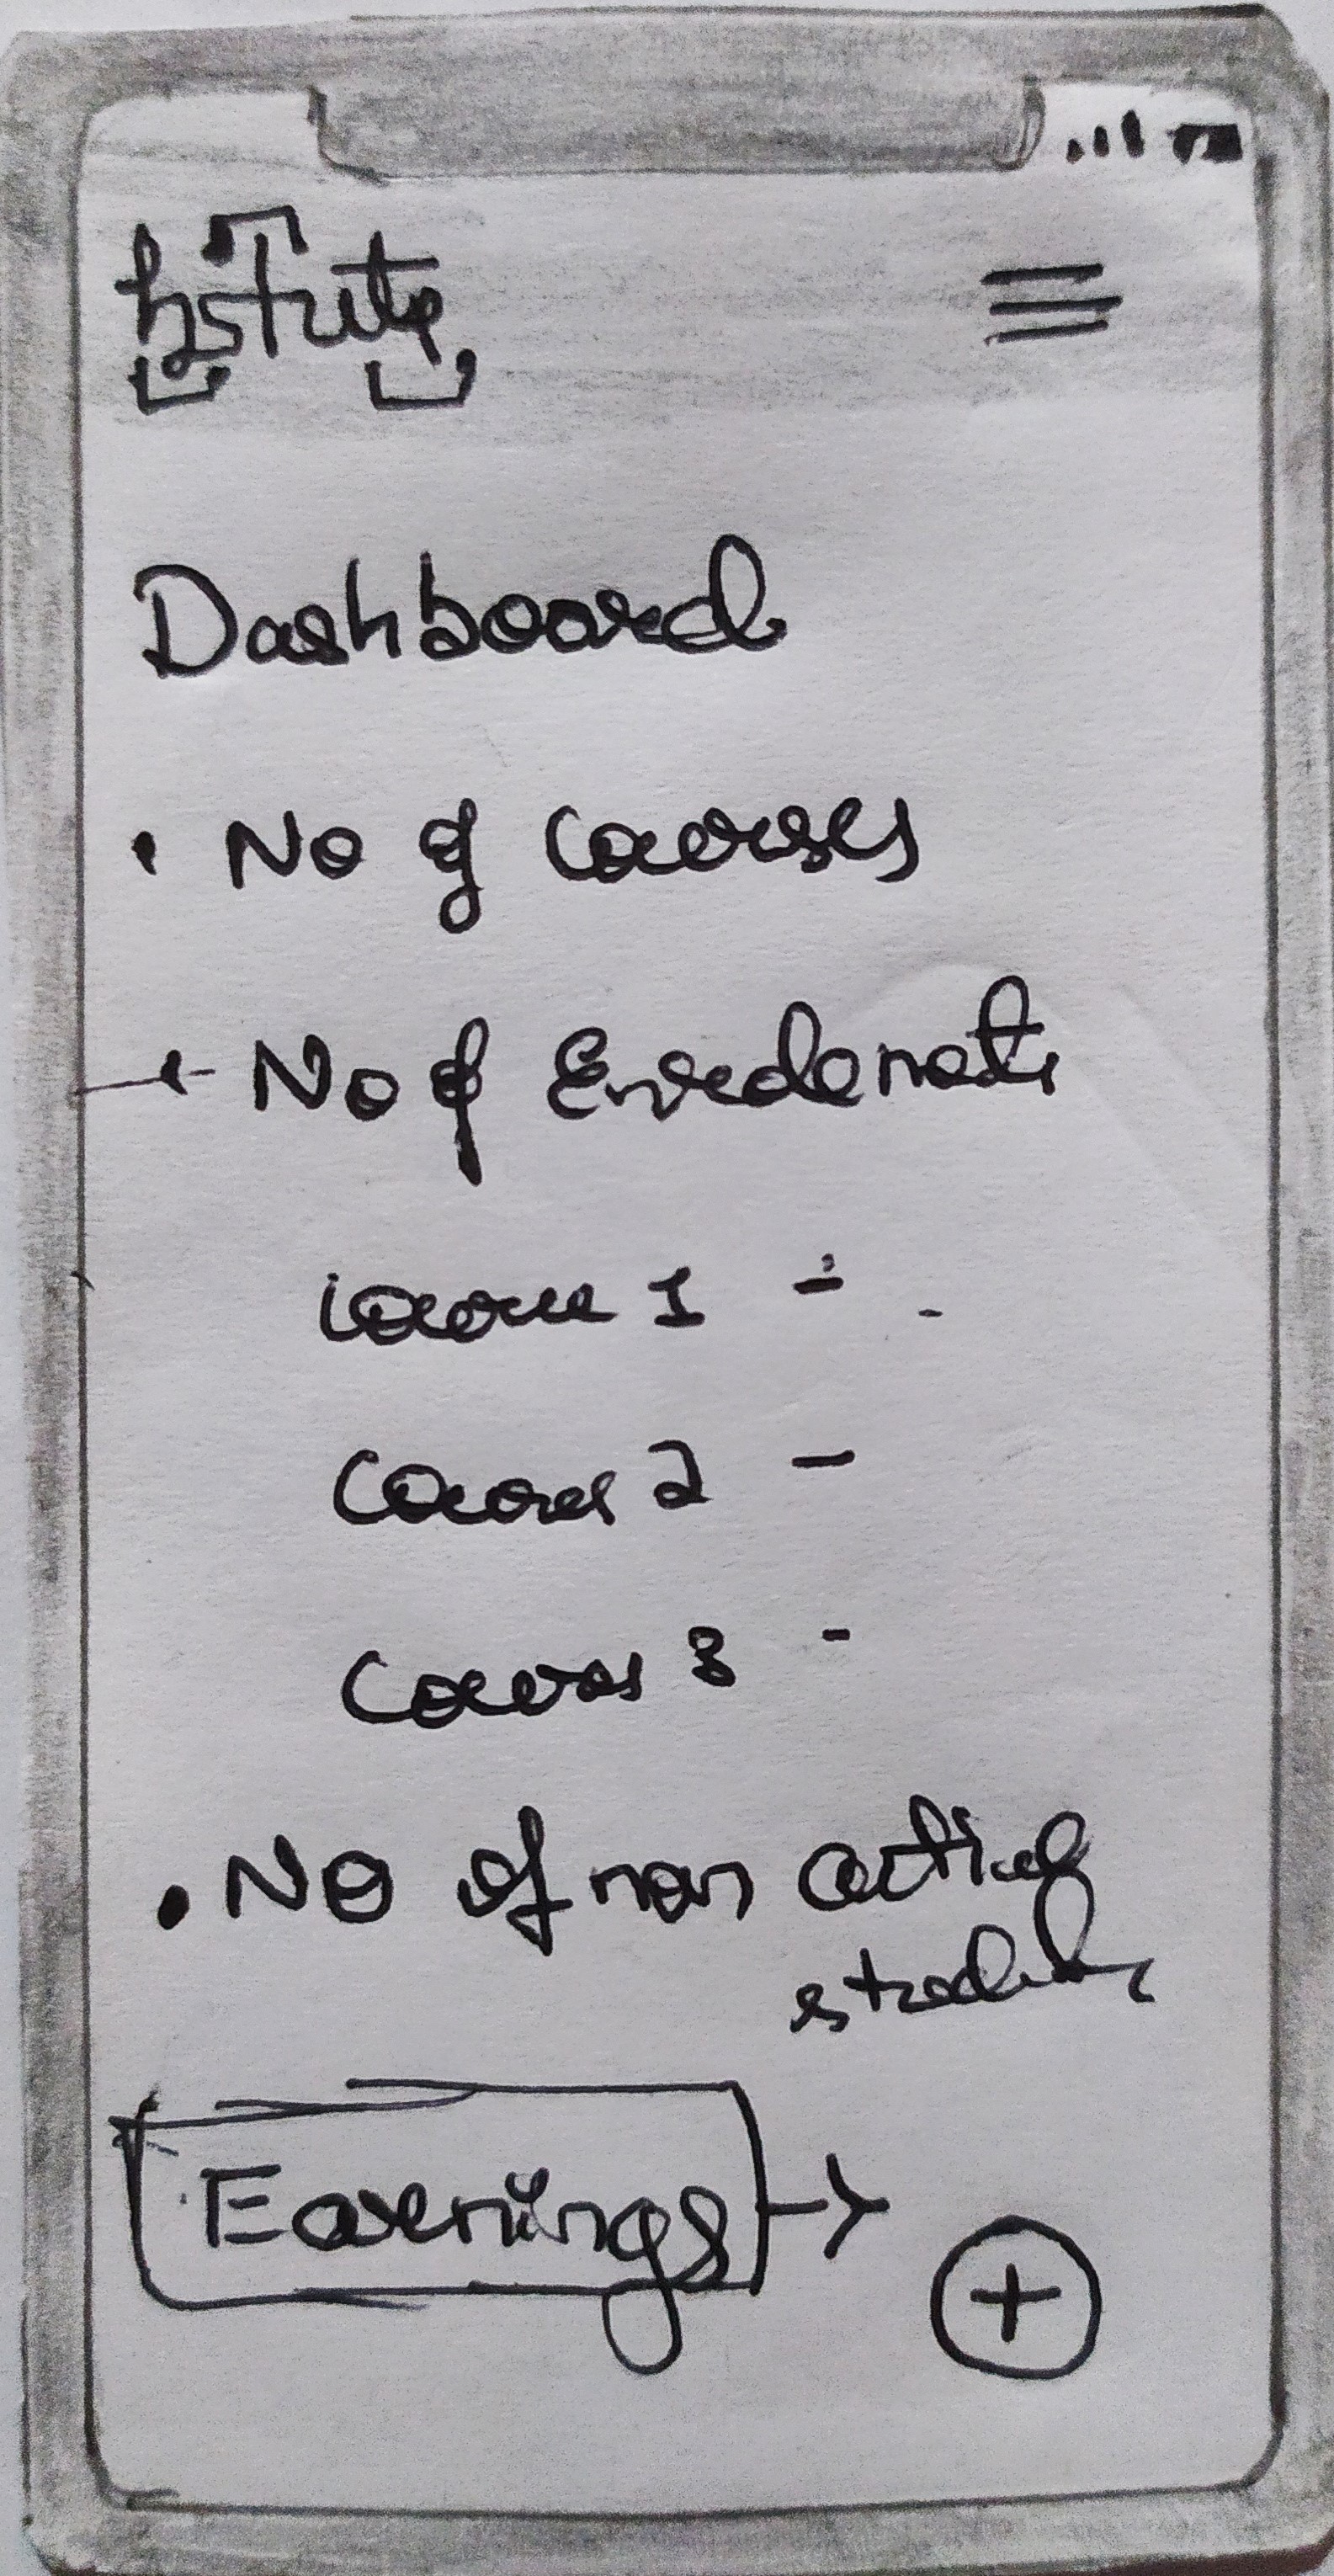 Dashboard
• No of Courses
• No of
Course 1 -
Course 2 -
Course 3 -
• No of non active
students
Earnings →
+